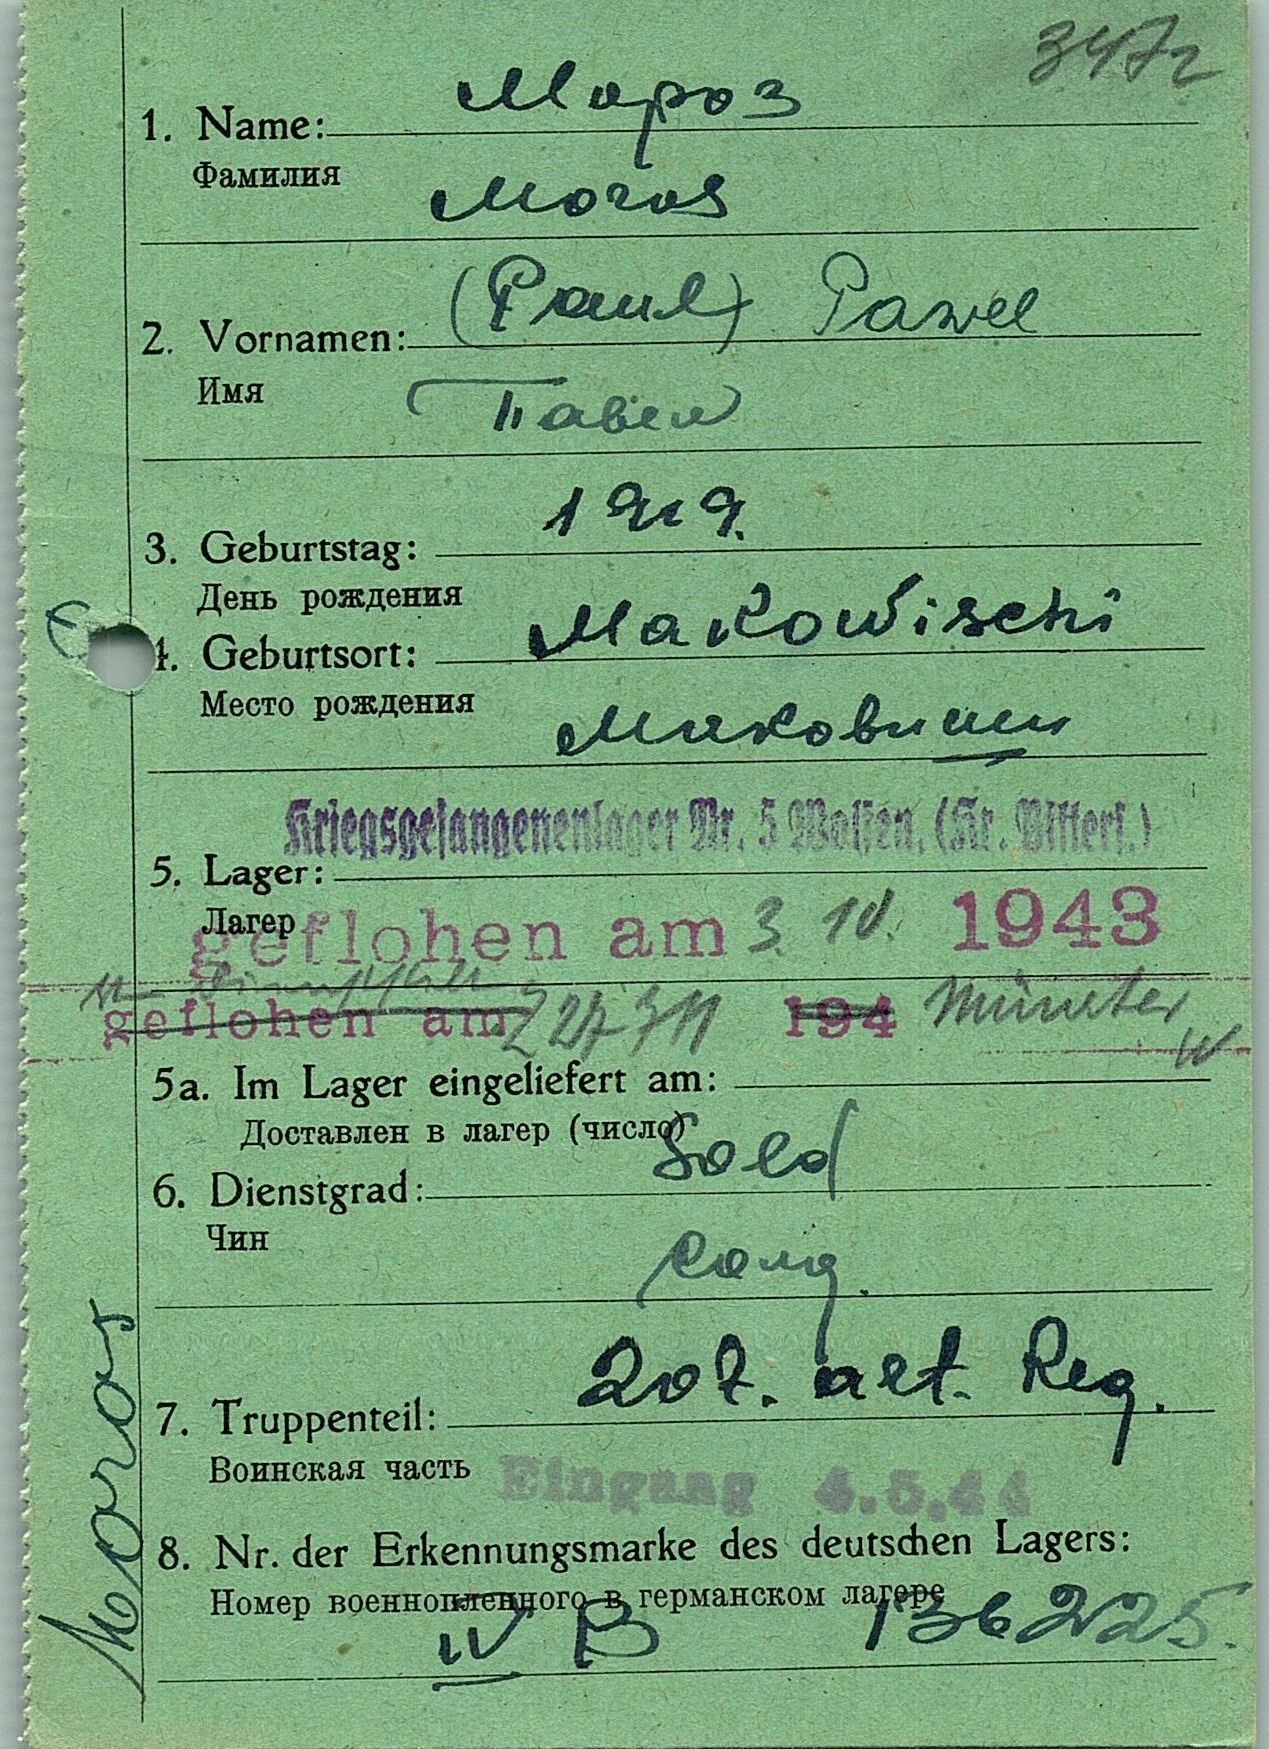 347г
Мороз
1. Name:
Фамилия
Moros
(Paul) Pawel
2. Vornamen:
Имя
Павел
1919.
3. Geburtstag:
День рождения
Makowischi
4. Geburtsort:
Место рождения
Маковищи
Kriegsgefangenenlager Nr. 5 Wolfen, (Kr. Bitterf.)
5. Lager:
Лагер
geflohen am 3. 10. 1943
geflohen am 194 Münster
W
5a. Im Lager eingeliefert am:
Доставлен в лагер (число)
Sold
6. Dienstgrad:
Чин
Солд.
207. art. Reg.
7. Truppenteil:
Воинская часть
Eingang 4.5.44
8. Nr. der Erkennungsmarke des deutschen Lagers:
Номер военнопленного в германском лагере
IV B 136225.
Moros